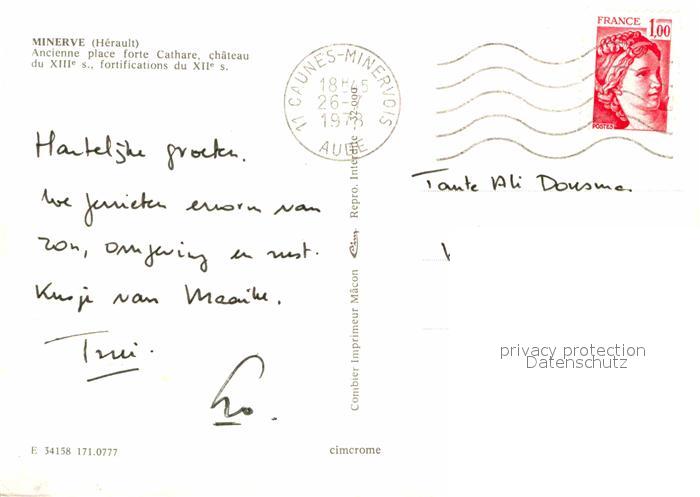 MINERVE (Hérault)
Ancienne place forte Cathare, château
du XIIIe s., fortifications du XIIe s.
11 CAUNES-MINERVOIS
18H45
26-
1978
AUDE
FRANCE
1,00
POSTES
Hartelijke groeten.
We genieten enorm van
zon, omgeving en rust.
Kusje van Maaike.
Trui.
Tante Ali Dousma
Combier Imprimeur Mâcon Cim Repro. Interdite
E 34158 171.0777
cimcrome
privacy protection
Datenschutz